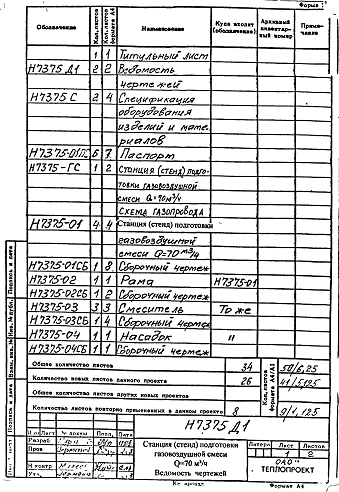 Форма 1
Обозначение Кол. листов Кол. листов формата А4 Наименование Куда входит (обозначение) Архивный инвентарный номер Примечание
1 1 Титульный лист
Н7375 Д1 2 2 Ведомость
чертежей
Н7375 С 2 4 Спецификация
оборудования
изделий и мате-
риалов
Н7375-01ПС 6 7 Паспорт
Н7375-ГС 1 2 Станция (стенд) подго-
товки газовоздушной
смеси Q=70 м³/ч
Схема газопровода
Н7375-01 4 4 Станция (стенд) подготовки
газовоздушной
смеси Q=70 м³/ч
Н7375-01СБ 1 8 Сборочный чертеж
Н7375-02 1 1 Рама Н7375-01
Н7375-02СБ 1 2 Сборочный чертеж
Н7375-03 3 3 Смеситель То же
Н7375-03СБ 1 4 Сборочный чертеж
Н7375-04 1 1 Насадок "
Н7375-04СБ 1 1 Сборочный чертеж
Общее количество листов 34 Кол. листов формата А4/А1 50/6,25
Количество новых листов данного проекта 26 41/5,125
Общее количество листов других новых проектов
Количество листов повторно примененных в данном проекте 8 9/1,125
Н7375 Д1
Изм Лист № докум Подп. Дата
Разраб
Пров
Н контр
Утв.
Станция (стенд) подготовки
газовоздушной смеси
Q=70 м³/ч
Ведомость чертежей
Литера Лист Листов
1 2
ОАО
ТЕПЛОПРОЕКТ
Подпись и дата
Взам. инв. №
Инв. № дубл.
Подпись и дата
Формат А4